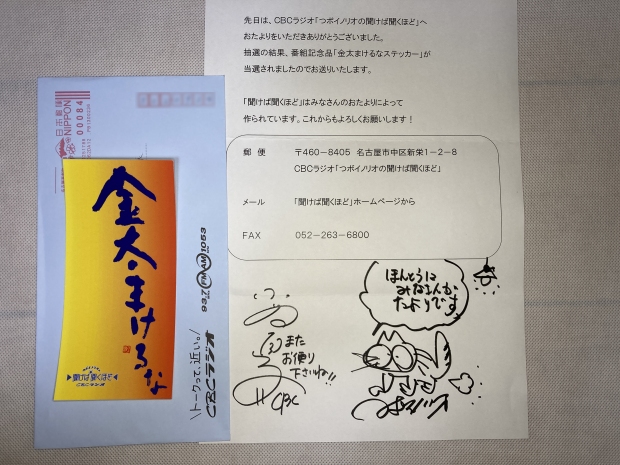 先日は、CBCラジオ「つボイノリオの聞けば聞くほど」へ
おたよりをいただきありがとうございました。
抽選の結果、番組記念品「金太まけるなステッカー」が
当選されましたのでお送りいたします。
「聞けば聞くほど」はみなさんのおたよりによって
作られています。これからもよろしくお願いします！
郵 便 〒460－8405 名古屋市中区新栄1－2－8
CBCラジオ「つボイノリオの聞けば聞くほど」
メール 「聞けば聞くほど」ホームページから
FAX 052－263－6800
ほんとうに
みなさんが
たよりです
また
お便り
下さいね!!
CBC
日本郵便
NIPPON
00084
金太・まけるな
聞けば聞くほど
93.7 FM AM 1053
\トークって、近い。/
CBCラジオ